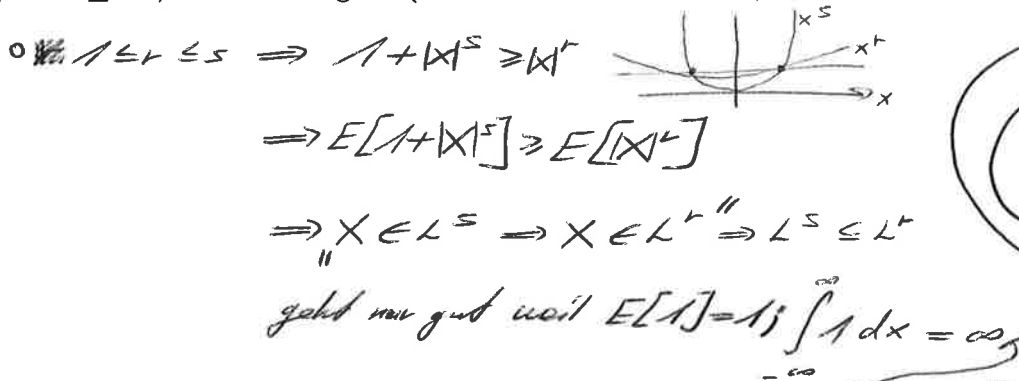 1 ≤ r ≤ s ⇒ 1+|x|^s ≥ |x|^r
x^s
x^r
x
⇒ E[1+|X|^s] ≥ E[|X|^r]
⇒ "X ∈ L^s ⇒ X ∈ L^r" ⇒ L^s ≤ L^r
geht nur gut weil E[1]=1; ∫_{-∞}^{∞} 1 dx = ∞